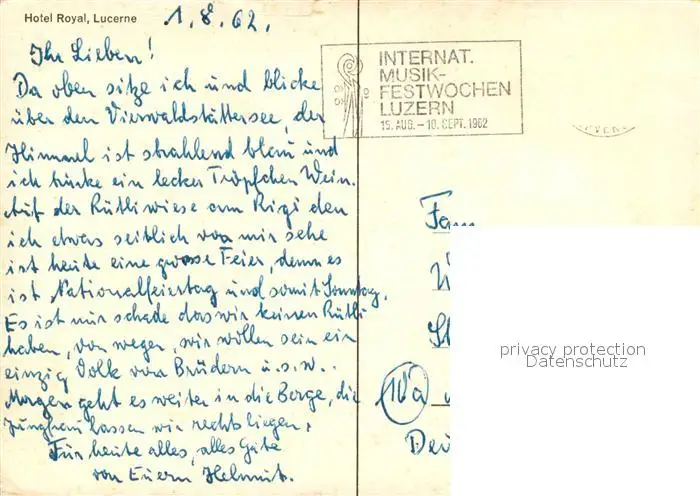 Hotel Royal, Lucerne
1.8.62.
Ihr Lieben!
Da oben sitze ich und blicke
über den Vierwaldstättersee, der
Himmel ist strahlend blau und
ich trinke ein lecker Tröpfchen Wein.
Auf der Rütliwiese am Rigi den
ich etwas seitlich von mir sehe
ist heute eine grosse Feier, denn es
ist Nationalfeiertag und somit Sonntag.
Es ist nur schade das wir keinen Rütli
haben, von wegen, wir wollen sein ein
einzig Volk von Brüdern u.s.w..
Morgen geht es weiter in die Berge, die
Jungfrau lassen wir rechts liegen.
Für heute alles, alles Gute
von Euerm Helmut.
INTERNAT.
MUSIK-
FESTWOCHEN
LUZERN
15. AUG. – 10. SEPT. 1962
Fam
(10a)
privacy protection
Datenschutz